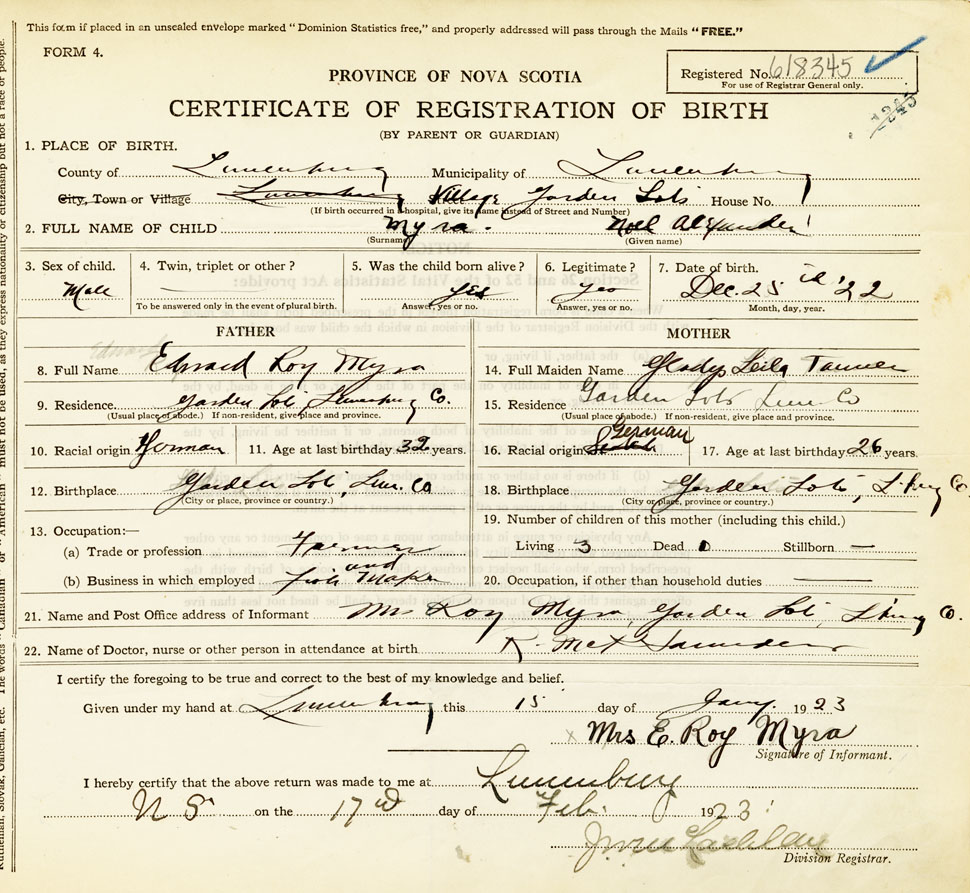 This form if placed in an unsealed envelope marked "Dominion Statistics free," and properly addressed will pass through the Mails "FREE."
FORM 4.
Registered No. 618345
For use of Registrar General only.
1245
PROVINCE OF NOVA SCOTIA
CERTIFICATE OF REGISTRATION OF BIRTH
(BY PARENT OR GUARDIAN)
1. PLACE OF BIRTH.
County of Lunenburg Municipality of Lunenburg
City, Town or Village Lunenburg Village Garden Lots House No.
(If birth occurred in a hospital, give its name instead of Street and Number)
2. FULL NAME OF CHILD Myra. Noel Alexander
(Surname) (Given name)
3. Sex of child. Male
4. Twin, triplet or other?
To be answered only in the event of plural birth.
5. Was the child born alive? yes
Answer, yes or no.
6. Legitimate? yes
Answer, yes or no.
7. Date of birth. Dec. 25 '22
Month, day, year.
FATHER
Edward
8. Full Name Edward Roy Myra
9. Residence Garden Lots, Lunenburg Co.
(Usual place of abode.) If non-resident, give place and province.
10. Racial origin German 11. Age at last birthday 32 years.
12. Birthplace Garden Lots, Lun. Co
(City or place, province or country.)
13. Occupation:—
(a) Trade or profession Farmer
and
(b) Business in which employed Maker
MOTHER
14. Full Maiden Name Gladys Leila Tanner
15. Residence Garden Lots Lun Co
(Usual place of abode.) If non-resident, give place and province.
16. Racial origin German 17. Age at last birthday 26 years.
18. Birthplace Garden Lots, L'burg Co
(City or place, province or country.)
19. Number of children of this mother (including this child.)
Living 3 Dead 0 Stillborn —
20. Occupation, if other than household duties —
21. Name and Post Office address of Informant Mrs Roy Myra, Garden Lots, L'burg Co.
22. Name of Doctor, nurse or other person in attendance at birth
I certify the foregoing to be true and correct to the best of my knowledge and belief.
Given under my hand at Lunenburg this 15 day of Jany. 1923
x Mrs E. Roy Myra
Signature of Informant.
I hereby certify that the above return was made to me at Lunenburg
N S on the 17th day of Feb. 1923
Division Registrar.